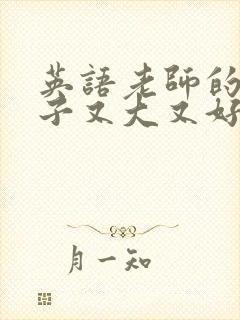 英語老師的
子又大又好
月一知